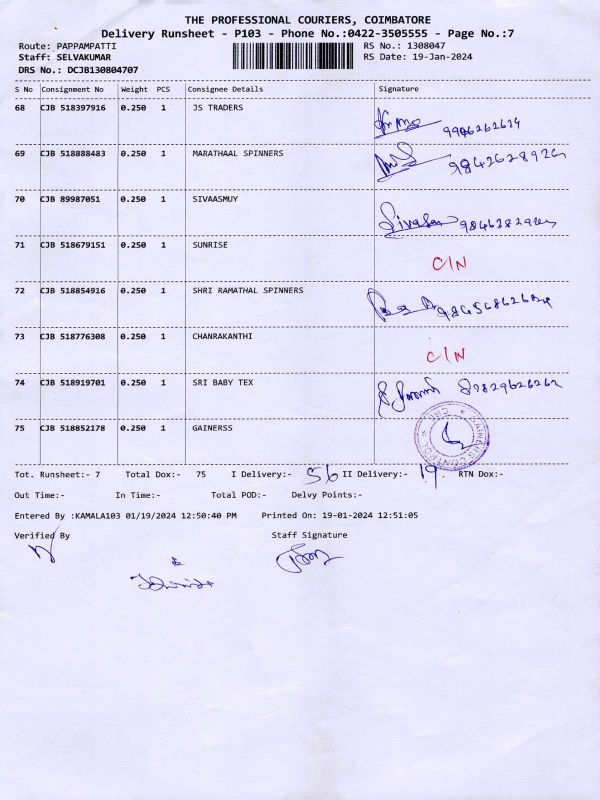 THE PROFESSIONAL COURIERS, COIMBATORE
Delivery Runsheet - P103 - Phone No.:0422-3505555 - Page No.:7
Route: PAPPAMPATTI RS No.: 1308047
Staff: SELVAKUMAR RS Date: 19-Jan-2024
DRS No.: DCJB130804707
S No Consignment No Weight PCS Consignee Details Signature
68 CJB 518397916 0.250 1 JS TRADERS
69 CJB 518888483 0.250 1 MARATHAAL SPINNERS
70 CJB 89987051 0.250 1 SIVAASMUY
71 CJB 518679151 0.250 1 SUNRISE C/N
72 CJB 518854916 0.250 1 SHRI RAMATHAL SPINNERS
73 CJB 518776308 0.250 1 CHANRAKANTHI C/N
74 CJB 518919701 0.250 1 SRI BABY TEX
75 CJB 518852178 0.250 1 GAINERSS
Tot. Runsheet:- 7 Total Dox:- 75 I Delivery:- 56 II Delivery:- 19 RTN Dox:-
Out Time:- In Time:- Total POD:- Delvy Points:-
Entered By :KAMALA103 01/19/2024 12:50:40 PM Printed On: 19-01-2024 12:51:05
Verified By Staff Signature